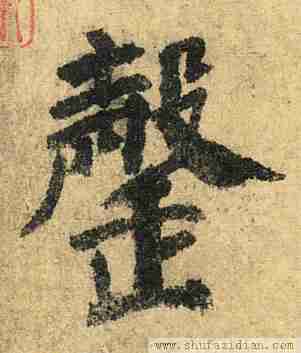 罄
www.shufazidian.com